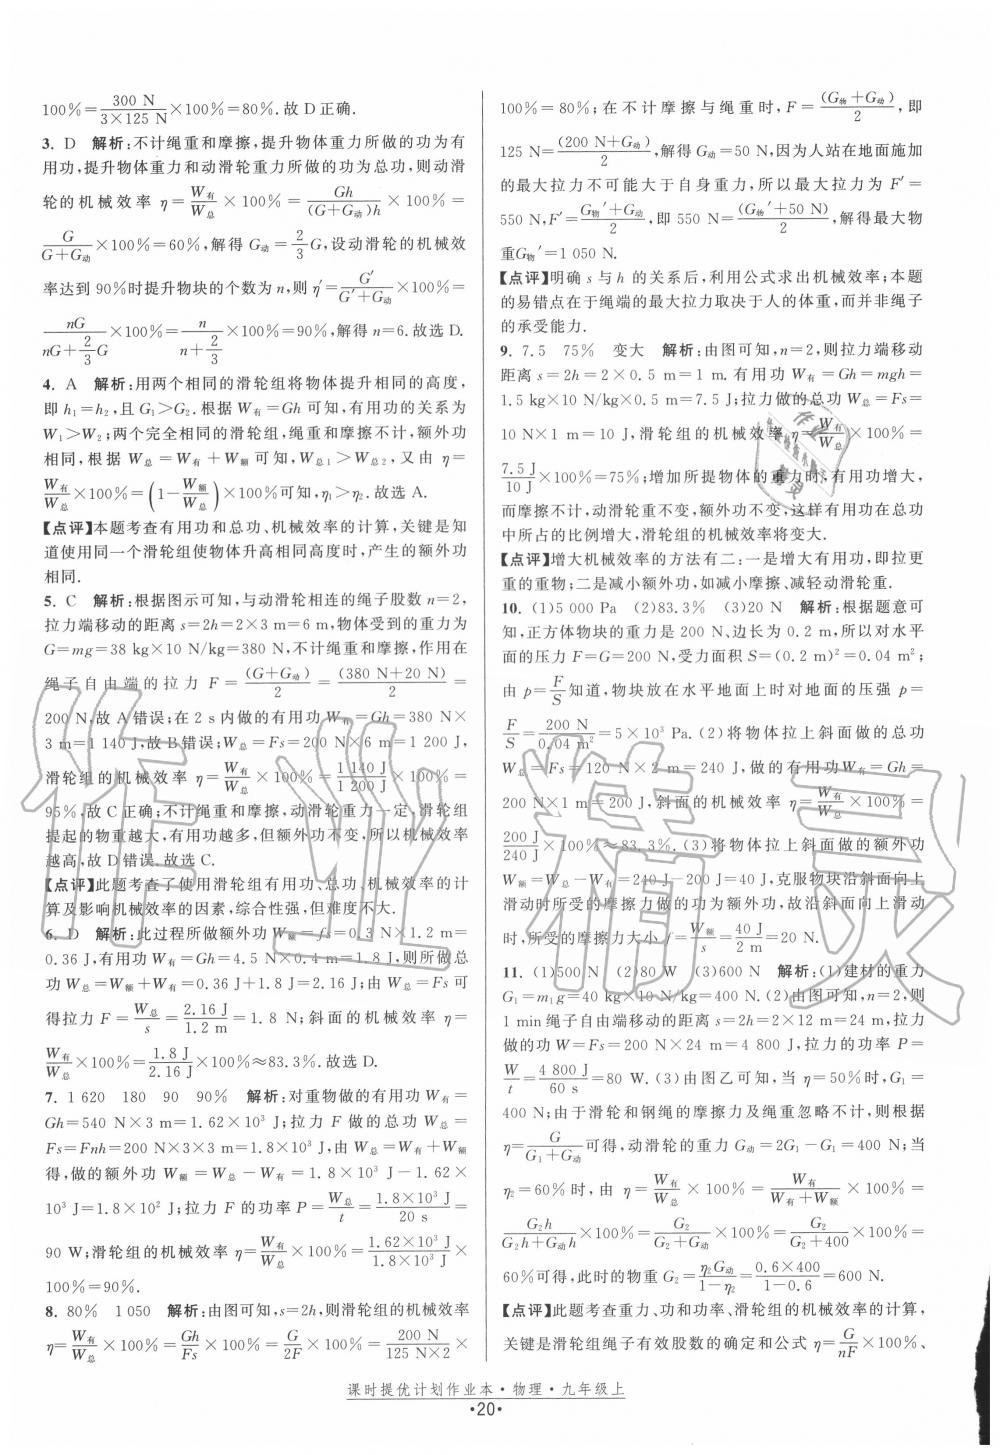 100%=300 N/(3×125 N)×100%=80%.故 D 正确.
3. D 解析:不计绳重和摩擦,提升物体重力所做的功为有
用功,提升物体重力和动滑轮重力所做的功为总功,则动滑
轮的机械效率 η=W有/W总×100%=Gh/((G+G动)h)×100%=
G/(G+G动)×100%=60%,解得 G动=2/3G,设动滑轮的机械效
率达到 90%时提升物块的个数为 n,则 η′=G′/(G′+G动)×100%=
nG/(nG+2/3G)×100%=n/(n+2/3)×100%=90%,解得 n=6.故选 D.
4. A 解析:用两个相同的滑轮组将物体提升相同的高度,
即 h₁=h₂,且 G₁>G₂.根据 W有=Gh 可知,有用功的关系为
W₁>W₂;两个完全相同的滑轮组,绳重和摩擦不计,额外功
相同,根据 W总=W有+W额可知,W总1>W总2,又由 η=
W有/W总×100%=(1-W额/W总)×100%可知,η₁>η₂.故选 A.
【点评】本题考查有用功和总功、机械效率的计算,关键是知
道使用同一个滑轮组使物体升高相同高度时,产生的额外功
相同.
5. C 解析:根据图示可知,与动滑轮相连的绳子股数 n=2,
拉力端移动的距离 s=2h=2×3 m=6 m,物体受到的重力为
G=mg=38 kg×10 N/kg=380 N,不计绳重和摩擦,作用在
绳子自由端的拉力 F=(G+G动)/2=(380 N+20 N)/2=
200 N,故 A 错误;在 2 s 内做的有用功 W有=Gh=380 N×
3 m=1 140 J,故 B 错误;W总=Fs=200 N×6 m=1 200 J,
滑轮组的机械效率 η=W有/W总×100%=1 140 J/1 200 J×100%=
95%,故 C 正确;不计绳重和摩擦,动滑轮重力一定,滑轮组
提起的物重越大,有用功越多,但额外功不变,所以机械效率
越高,故 D 错误.故选 C.
【点评】此题考查了使用滑轮组有用功、总功、机械效率的计
算及影响机械效率的因素,综合性强,但难度不大.
6. D 解析:此过程所做额外功 W额=fs=0.3 N×1.2 m=
0.36 J,有用功 W有=Gh=4.5 N×0.4 m=1.8 J,则所做总
功 W总=W额+W有=0.36 J+1.8 J=2.16 J,由 W总=Fs 可
得拉力 F=W总/s=2.16 J/1.2 m=1.8 N;斜面的机械效率 η=
W有/W总×100%=1.8 J/2.16 J×100%≈83.3%.故选 D.
7. 1 620 180 90 90% 解析:对重物做的有用功 W有=
Gh=540 N×3 m=1.62×10³ J;拉力 F 做的总功 W总=
Fs=Fnh=200 N×3×3 m=1.8×10³ J,由 W总=W有+W额
得,做的额外功 W额=W总-W有=1.8×10³ J-1.62×
10³ J=1.8×10² J;拉力 F 的功率 P=W总/t=1.8×10³ J/20 s=
90 W;滑轮组的机械效率 η=W有/W总×100%=1.62×10³ J/1.8×10³ J×
100%=90%.
8. 80% 1 050 解析:由图可知,s=2h,则滑轮组的机械效率
η=W有/W总×100%=Gh/Fs×100%=G/2F×100%=200 N/(125 N×2)×
100%=80%;在不计摩擦与绳重时,F=(G物+G动)/2,即
125 N=(200 N+G动)/2,解得 G动=50 N,因为人站在地面施加
的最大拉力不可能大于自身重力,所以最大拉力 F′=
550 N,F′=(G物′+G动)/2,即 550 N=(G物′+50 N)/2,解得最大物
重G物′=1 050 N.
【点评】明确 s 与 h 的关系后,利用公式求出机械效率;本题
的易错点在于绳端的最大拉力取决于人的体重,而并非绳子
的承受能力.
9. 7.5 75% 变大 解析:由图可知,n=2,则拉力端移动
距离 s=2h=2×0.5 m=1 m.有用功 W有=Gh=mgh=
1.5 kg×10 N/kg×0.5 m=7.5 J;拉力做的总功 W总=Fs=
10 N×1 m=10 J,滑轮组的机械效率 η=W有/W总×100%=
7.5 J/10 J×100%=75%;增加所提物体的重力时,有用功增大,
而摩擦不计,动滑轮重不变,额外功不变,这样有用功在总功
中所占的比例增大,滑轮组的机械效率将变大.
【点评】增大机械效率的方法有二:一是增大有用功,即拉更
重的重物;二是减小额外功,如减小摩擦、减轻动滑轮重.
10. (1)5 000 Pa (2)83.3% (3)20 N 解析:根据题意可
知,正方体物块的重力是 200 N、边长为 0.2 m,所以对水平
面的压力 F=G=200 N,受力面积 S=(0.2 m)²=0.04 m²,
由 p=F/S知道,物块放在水平地面上时对地面的压强 p=
F/S=200 N/0.04 m²=5×10³ Pa.(2)将物体拉上斜面做的总功
W总=Fs=120 N×2 m=240 J,做的有用功W有=Gh=
200 N×1 m=200 J,斜面的机械效率 η=W有/W总×100%=
200 J/240 J×100%≈83.3%.(3)将物体拉上斜面做的额外功
W额=W总-W有=240 J-200 J=40 J,克服物块沿斜面向上
滑动时所受的摩擦力做的功为额外功,故沿斜面向上滑动
时,所受的摩擦力大小 f=W额/s=40 J/2 m=20 N.
11. (1)500 N (2)80 W (3)600 N 解析:(1)建材的重力
G₁=m₁g=40 kg×10 N/kg=400 N.(2)由图可知,则
1 min绳子自由端移动的距离 s=2h=2×12 m=24 m,拉力
做的功 W=Fs=200 N×24 m=4 800 J,拉力的功率 P=
W/t=4 800 J/60 s=80 W.(3)由图乙可知,当 η=50%时,G₁=
400 N;由于滑轮和钢绳的摩擦力及绳重忽略不计,则根据
η=G/(G₁+G动)可得,动滑轮的重力 G动=2G₁-G₁=400 N;当
η₂=60%时,由 η=W有/W总×100%=W有/(W有+W额)×100%=
G₂h/(G₂h+G动h)×100%=G₂/(G₂+G动)×100%=G₂/(G₂+400)×100%=
60%可得,此时的物重 G₂=η₂G动/(1-η₂)=0.6×400/(1-0.6)=600 N.
【点评】此题考查重力、功和功率、滑轮组的机械效率的计算,
关键是滑轮组绳子有效股数的确定和公式 η=G/nF×100%、
课时提优计划作业本·物理·九年级上
·20·
作业精灵